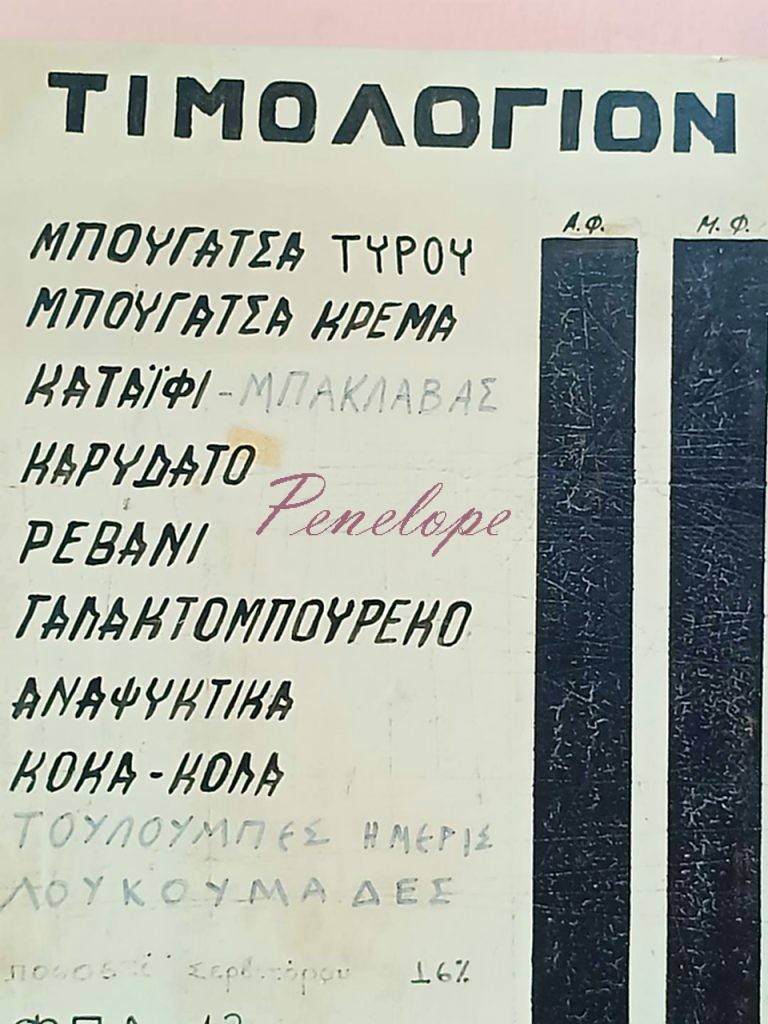 ΤΙΜΟΛΟΓΙΟΝ
Α.Φ. Μ.Φ.
ΜΠΟΥΓΑΤΣΑ ΤΥΡΟΥ
ΜΠΟΥΓΑΤΣΑ ΚΡΕΜΑ
ΚΑΤΑΪΦΙ - ΜΠΑΚΛΑΒΑΣ
ΚΑΡΥΔΑΤΟ
Penelope
ΡΕΒΑΝΙ
ΓΑΛΑΚΤΟΜΠΟΥΡΕΚΟ
ΑΝΑΨΥΚΤΙΚΑ
ΚΟΚΑ - ΚΟΛΑ
ΤΟΥΛΟΥΜΠΕΣ ΗΜΕΡΙΣ
ΛΟΥΚΟΥΜΑΔΕΣ
Σερβιτόρου 16%